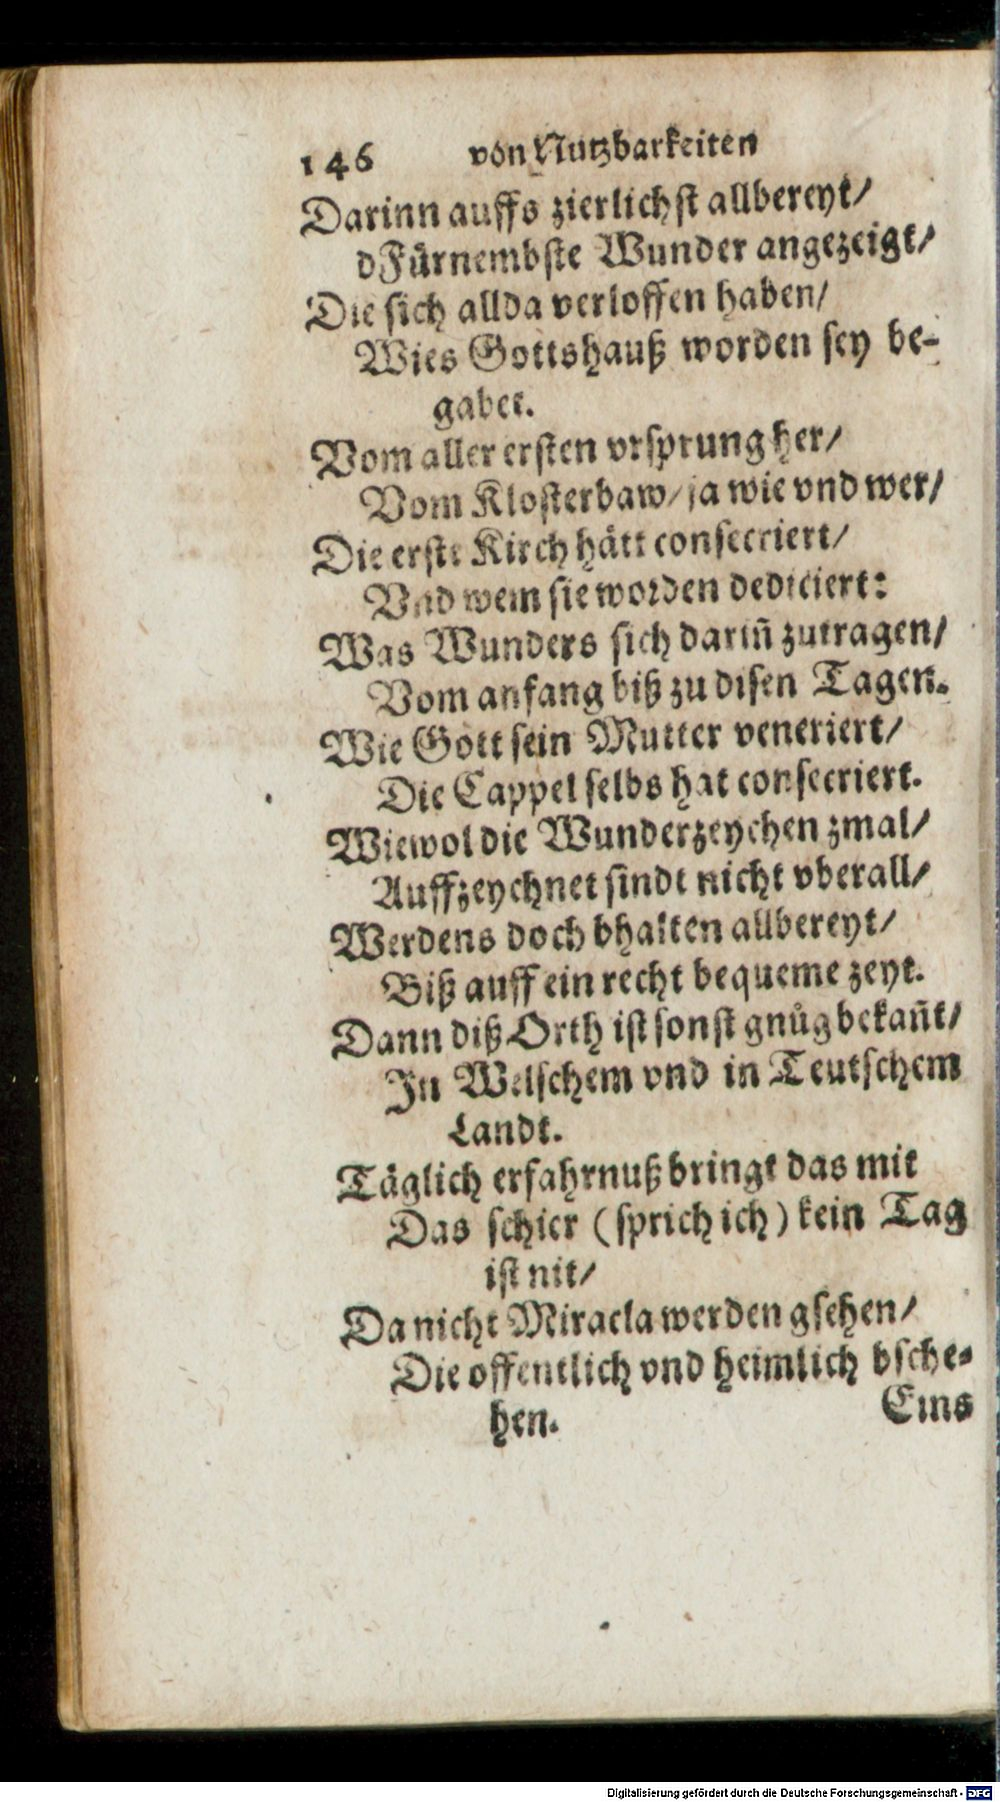 146 von Nutzbarkeiten
Darinn auffs zierlichst allbereyt/
dFürnembste Wunder angezeigt/
Die sich allda verloffen haben/
Wies Gottshauß worden sey be-
gabet.
Vom aller ersten vrsprung her/
Vom Klosterbaw/ ja wie vnd wer/
Die erste Kirch hätt consecriert/
Vnd wem sie worden dediciert:
Was Wunders sich dariñ zutragen/
Vom anfang biß zu disen Tagen.
Wie Gott sein Mutter veneriert/
Die Cappel selbs hat consecriert.
Wiewol die Wunderzeychen zmal/
Auffzeychnet sindt nicht vberall/
Werdens doch bhalten allbereyt/
Biß auff ein recht bequeme zeyt.
Dann diß Orth ist sonst gnůg bekañt/
In Welschem vnd in Teutschem
Landt.
Täglich erfahrnuß bringt das mit
Das schier (sprich ich) kein Tag
ist nit/
Da nicht Miracla werden gsehen/
Die offentlich vnd heimlich bsche-
hen.
Eins
Digitalisierung gefördert durch die Deutsche Forschungsgemeinschaft - DFG